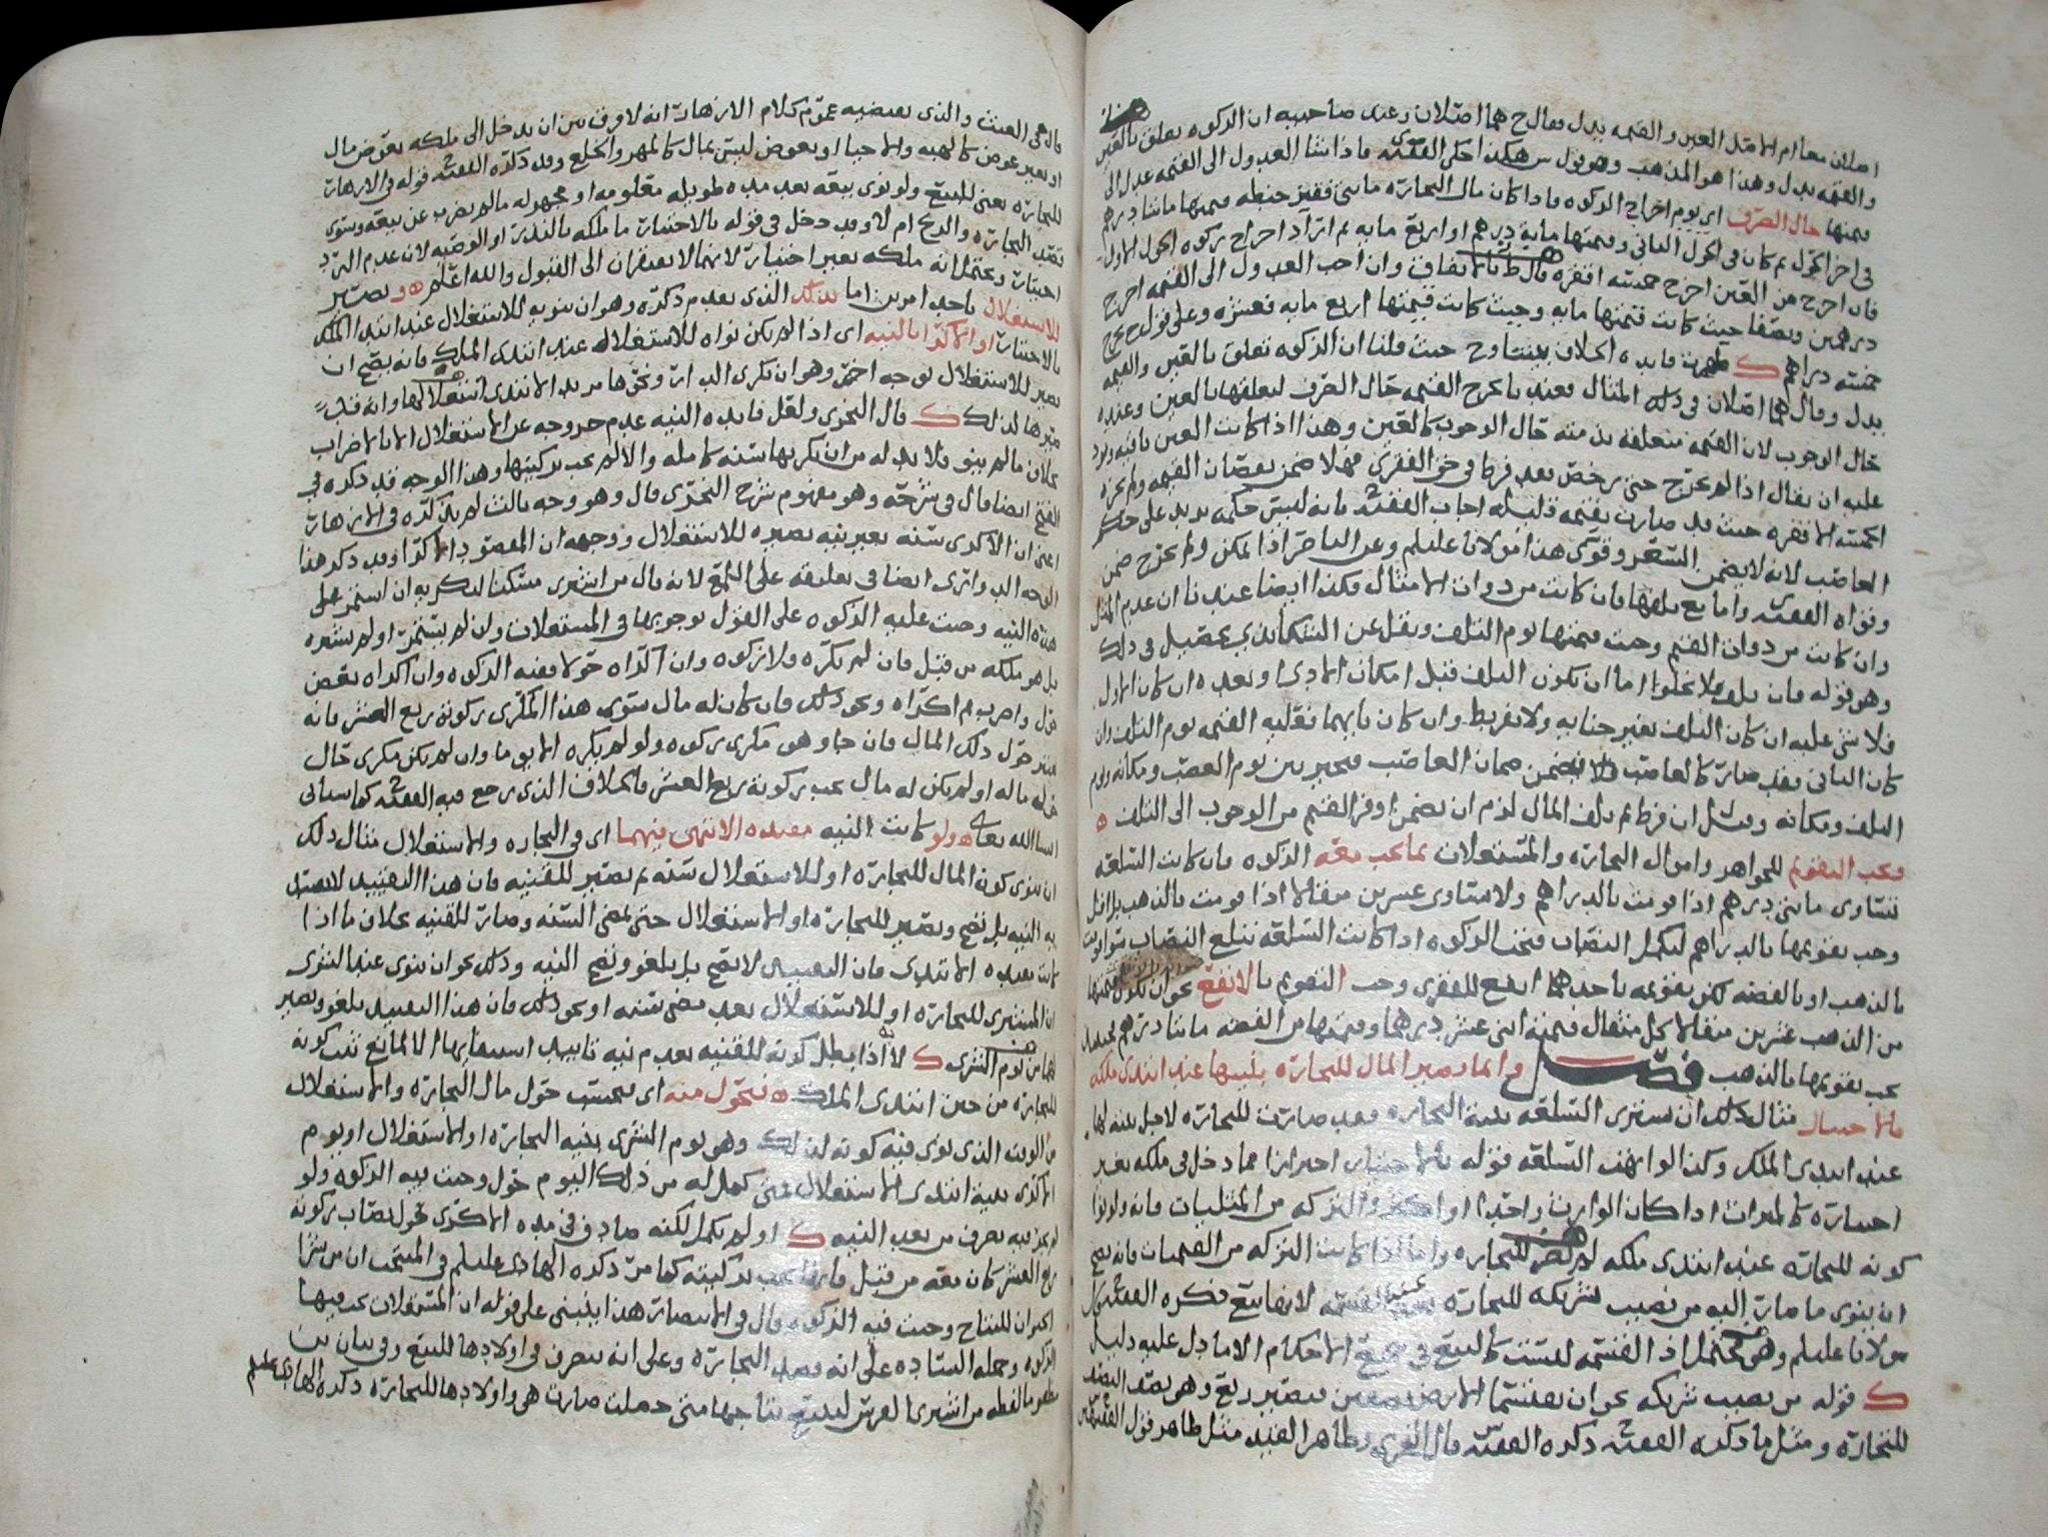 اصلان معا ام الاصل العين والقيمه بدل فقال ح هما اصلان وعند صاحبيه ان الزكوه تعلق بالعين
والقيمه بدل وهذا هو المذهب وهو قول س هكذا حكى الفقيه فاذا شا العدول الى القيمه عدل الى
قيمتها حال الصرف اى يوم اخراج الزكوه فاذا كان مال التجاره مائتى قفيز حنطه قيمتها مائتا درهم
فى اخر الحول ثم كان فى الحول الثانى وقيمتها مايه درهم او اربع مايه ثم اراد اخراج زكوه الحول الاول
فان اخرج من العين اخرج خمسه اقفزه قال ط بالاتفاق وان احب العدول الى القيمه اخرج
درهمين ونصفا حيث كانت قيمتها مايه وحيث كانت قيمتها اربع مايه فعشره وعلى قول ح يخرج
خمسه دراهم فايده الخلاف بيننا وح حيث قلنا ان الزكوه تعلق بالعين والقيمه
بدل وقال هما اصلان فى ذلك المثال فعندنا يخرج القيمه حال الصرف لتعلقها بالعين وعنده
حال الوجوب لان القيمه متعلقه بذمته حال الوجوب كالعين وهذا اذا كانت العين باقيه ويرد
عليه ان يقال اذا لم يخرج حتى رخص بعد فرط فى حق الفقرى فهلا ضمن نقصان القيمه ولم يجزه
الخمسه الاقفزه حيث قد صارت بقيمه قليله اجاب الفقيه بانه ليس حكمه يزيد على حكم
الغاصب لانه لا يضمن السعر وقوى هذا مولانا عليلم وعن الناصر اذا امكن ولم يخرج ضمن
وقواه الفقيه واما مع تلفها فان كانت من ذوات الامثال فكذا ايضا عندنا ان عدم المثل
وان كانت من ذوات القيم وجبت قيمتها يوم التلف ونقل عن السحامى تفصيل فى ذلك
وهو قوله فان تلف فلا يخلوا اما ان يكون التلف قبل امكان الادى او بعده ان كان الاول
فلا شى عليه ان كان التلف بغير جنايه ولا تفريط وان كان بايهما فعليه القيمه يوم التلف وان
كان الثانى فقد صار كالغاصب فيضمن ضمان الغاصب فيخير بين يوم الغصب ومكانه ويوم
التلف ومكانه وقيل ان فرط ثم تلف المال لزم ان يضمن اوفر القيم من الوجوب الى التلف ه
ويجب التقويم للجواهر واموال التجاره والمستغلات بما تجب معه الزكوه فان كانت السلعه
تساوى مائتى درهم اذا قومت بالدراهم ولا تساوى عشرين مثقالا اذا قومت بالذهب بل اقل
وجب تقويمها بالدراهم ليكمل النصاب فتجب الزكوه اذا كانت السلعه تبلغ النصاب سوا قومت
بالذهب او بالفضه لكن تقويمه باحدهما انفع للفقرى وجب التقويم بالانفع نحو ان تكون قيمتها
من الذهب عشرين مثقالا كل مثقال قيمته اثنى عشر درهما وقيمتها من الفضه مائتا درهم
يجب تقويمها بالذهب فصل وانما يصير المال للتجاره بنيتها عند ابتدى ملكه
بالاختيار مثال ذلك ان يشترى السلعه بنية التجاره فقد صارت للتجاره لاجل نيته لها
عند ابتدى الملك وكذا لو اتهب السلعه قوله بالاختيار احترازا مما دخل فى ملكه بغير
اختياره كالميراث اذا كان الوارث واحدا او اكثر والتركه من المثليات فانه ولو نوا
كونه للتجاره عند ابتدى ملكه لم يصر للتجاره واما اذا كانت التركه من القيميات فانه يصح
ان ينوى ما صار اليه من نصيب شريكه للتجاره عند القسمه لانها بيع ذكره الفقيه قال
مولانا عليلم وهو محتمل اذ القسمه ليست كالبيع فى جميع الاحكام الا ما دل عليه دليل
ك قوله من نصيب شريكه نحو ان يقتسما الارض نصفين فيصير ربع وهو نصف النصف
للتجاره ومثل ما ذكره الفقيه ذكره الفقيه قال النجرى وظاهر القيد مثل ظاهر قول الفقيهين
قال فى الغيث والذى يقتضيه عموم كلام الازهار انه لا فرق بين ان يدخل الى ملكه بعوض مال
او بغير عوض كالهبه والاحيا او بعوض ليس بمال كالمهر والخلع وقد ذكره الفقيه قوله فى الازهار
للتجاره يعنى للبيع ولو نوى بيعه بعد مده طويله معلومه او مجهوله مالم يضرب عن بيعه وسوى
قصد التجاره والربح ام لا وقد دخل فى قوله بالاختيار ما ملكه بالنذر او الوصيه لان عدم الرد
اختيار ويحتمل انه ملكه بغير اختيار لانهما لا يفتقران الى القبول والله اعلم ه ويصير
للاستغلال باحد امرين اما بذلك الذى تقدم ذكره وهو ان ينويه للاستغلال عند ابتدى الملك
بالاختيار او الاكرا بالنيه اى اذا لم يكن نواه للاستغلال عند ابتدى الملك فانه يصح ان
يصير للاستغلال بوجه اخر وهو ان يكرى الدار ونحوها مريد الابتدى استغلالها وانه قد
صيرها لذلك ك قال النجرى ولعل فايده النيه عدم خروجه عن الاستغلال الا بالاضراب
بخلاف ما لم ينو فلا بد له من ان يكريها سنه كامله والا لم يجب تزكيتها وهذا الوجه قد ذكره فى
الفتح ايضا قال فى شرحه وهو مفهوم شرح النجرى قال وهو وجه ثالث لم يذكره فى الازهار
اعنى ان الاكرى سنه بغير نيه يصيره للاستغلال ووجهه ان المقصود الاكرا وقد ذكر هذا
الوجه الدوارى ايضا فى تعليقه على اللمع لانه قال من اشترى مسكنا ليكريه ان استمر على
هذه النيه وجبت عليه الزكوه على القول بوجوبها فى المستغلات وان لم يستمر او لم يشتره
بل هو ملكه من قبل فان لم يكره فلا زكوه وان اكراه حولا ففيه الزكوه وان اكراه بعض
حول واضرب ثم اكراه ونحو ذلك فان كان له مال سوى هذا المكرى زكوته ربع العشر فانه
يعتبر حول ذلك المال فان جا وهو مكرى زكوه ولو لم يكره الا يوما وان لم يكن مكرى حال
حول ماله او لم يكن له مال يجب زكوته ربع العشر فالخلاف الذى يرجع فيه الفقيه كما سياتى
ان شا الله تعالى ه ولو كانت النيه مقيده الانتهى فيهما اى فى التجاره والاستغلال مثال ذلك
ان ينوى كون المال للتجاره او للاستغلال سنه ثم يصير للقنيه فان هذا التقييد لا يفسد
به النيه بل تصح ويصير للتجاره او الاستغلال حتى تمضى السنه وصار للقنيه بخلاف ما اذا
كانت مقيده الابتدى فان التقييد لا يصح بل يلغو وتصح النيه وذلك نحو ان ينوى عند الشرى
ان المشترى للتجاره او للاستغلال بعد مضى سنه او نحو ذلك فان هذا التقييد يلغو ويصير
لهما من يوم الشرى ك لانه اذا بطل كونه للقنيه بعدم نيه تابيد استغنايها لا لمانع ثبت كونه
للتجاره من حين ابتدى الملك ه فتحول منه اى يحتسب حول مال التجاره والاستغلال
من الوقت الذى نوى فيه كونه لذلك وهو يوم الشرى بنيه التجاره او الاستغلال او يوم
الاكرى بنية ابتدى الاستغلال فمتى كمل له من ذلك اليوم حول وجبت فيه الزكوه ولو
لم يجز فيه تصرف من بعد النيه ك او لم يكمل لكنه صادف فى مده الاكرى حول نصاب زكوته
ربع العشر كان معه من قبل فانه يجب تزكيته كما مر ذكره الهادى عليلم فى المنتخب ان من شرا
الحيوان للنتاج وجبت فيه الزكوه قال فى الانتصار هذا ينبنى على قوله ان المستغلات تجب فيها
الزكوه وحمله الساده على انه قصد التجاره وعلى انه يتصرف فى اولادها للبيع وفى بيان بن
مظفر ما لفظه من اشترى لغرس ليبيع نتاجها متى حصلت صارت هى واولادها للتجاره ذكره الهادى عليلم